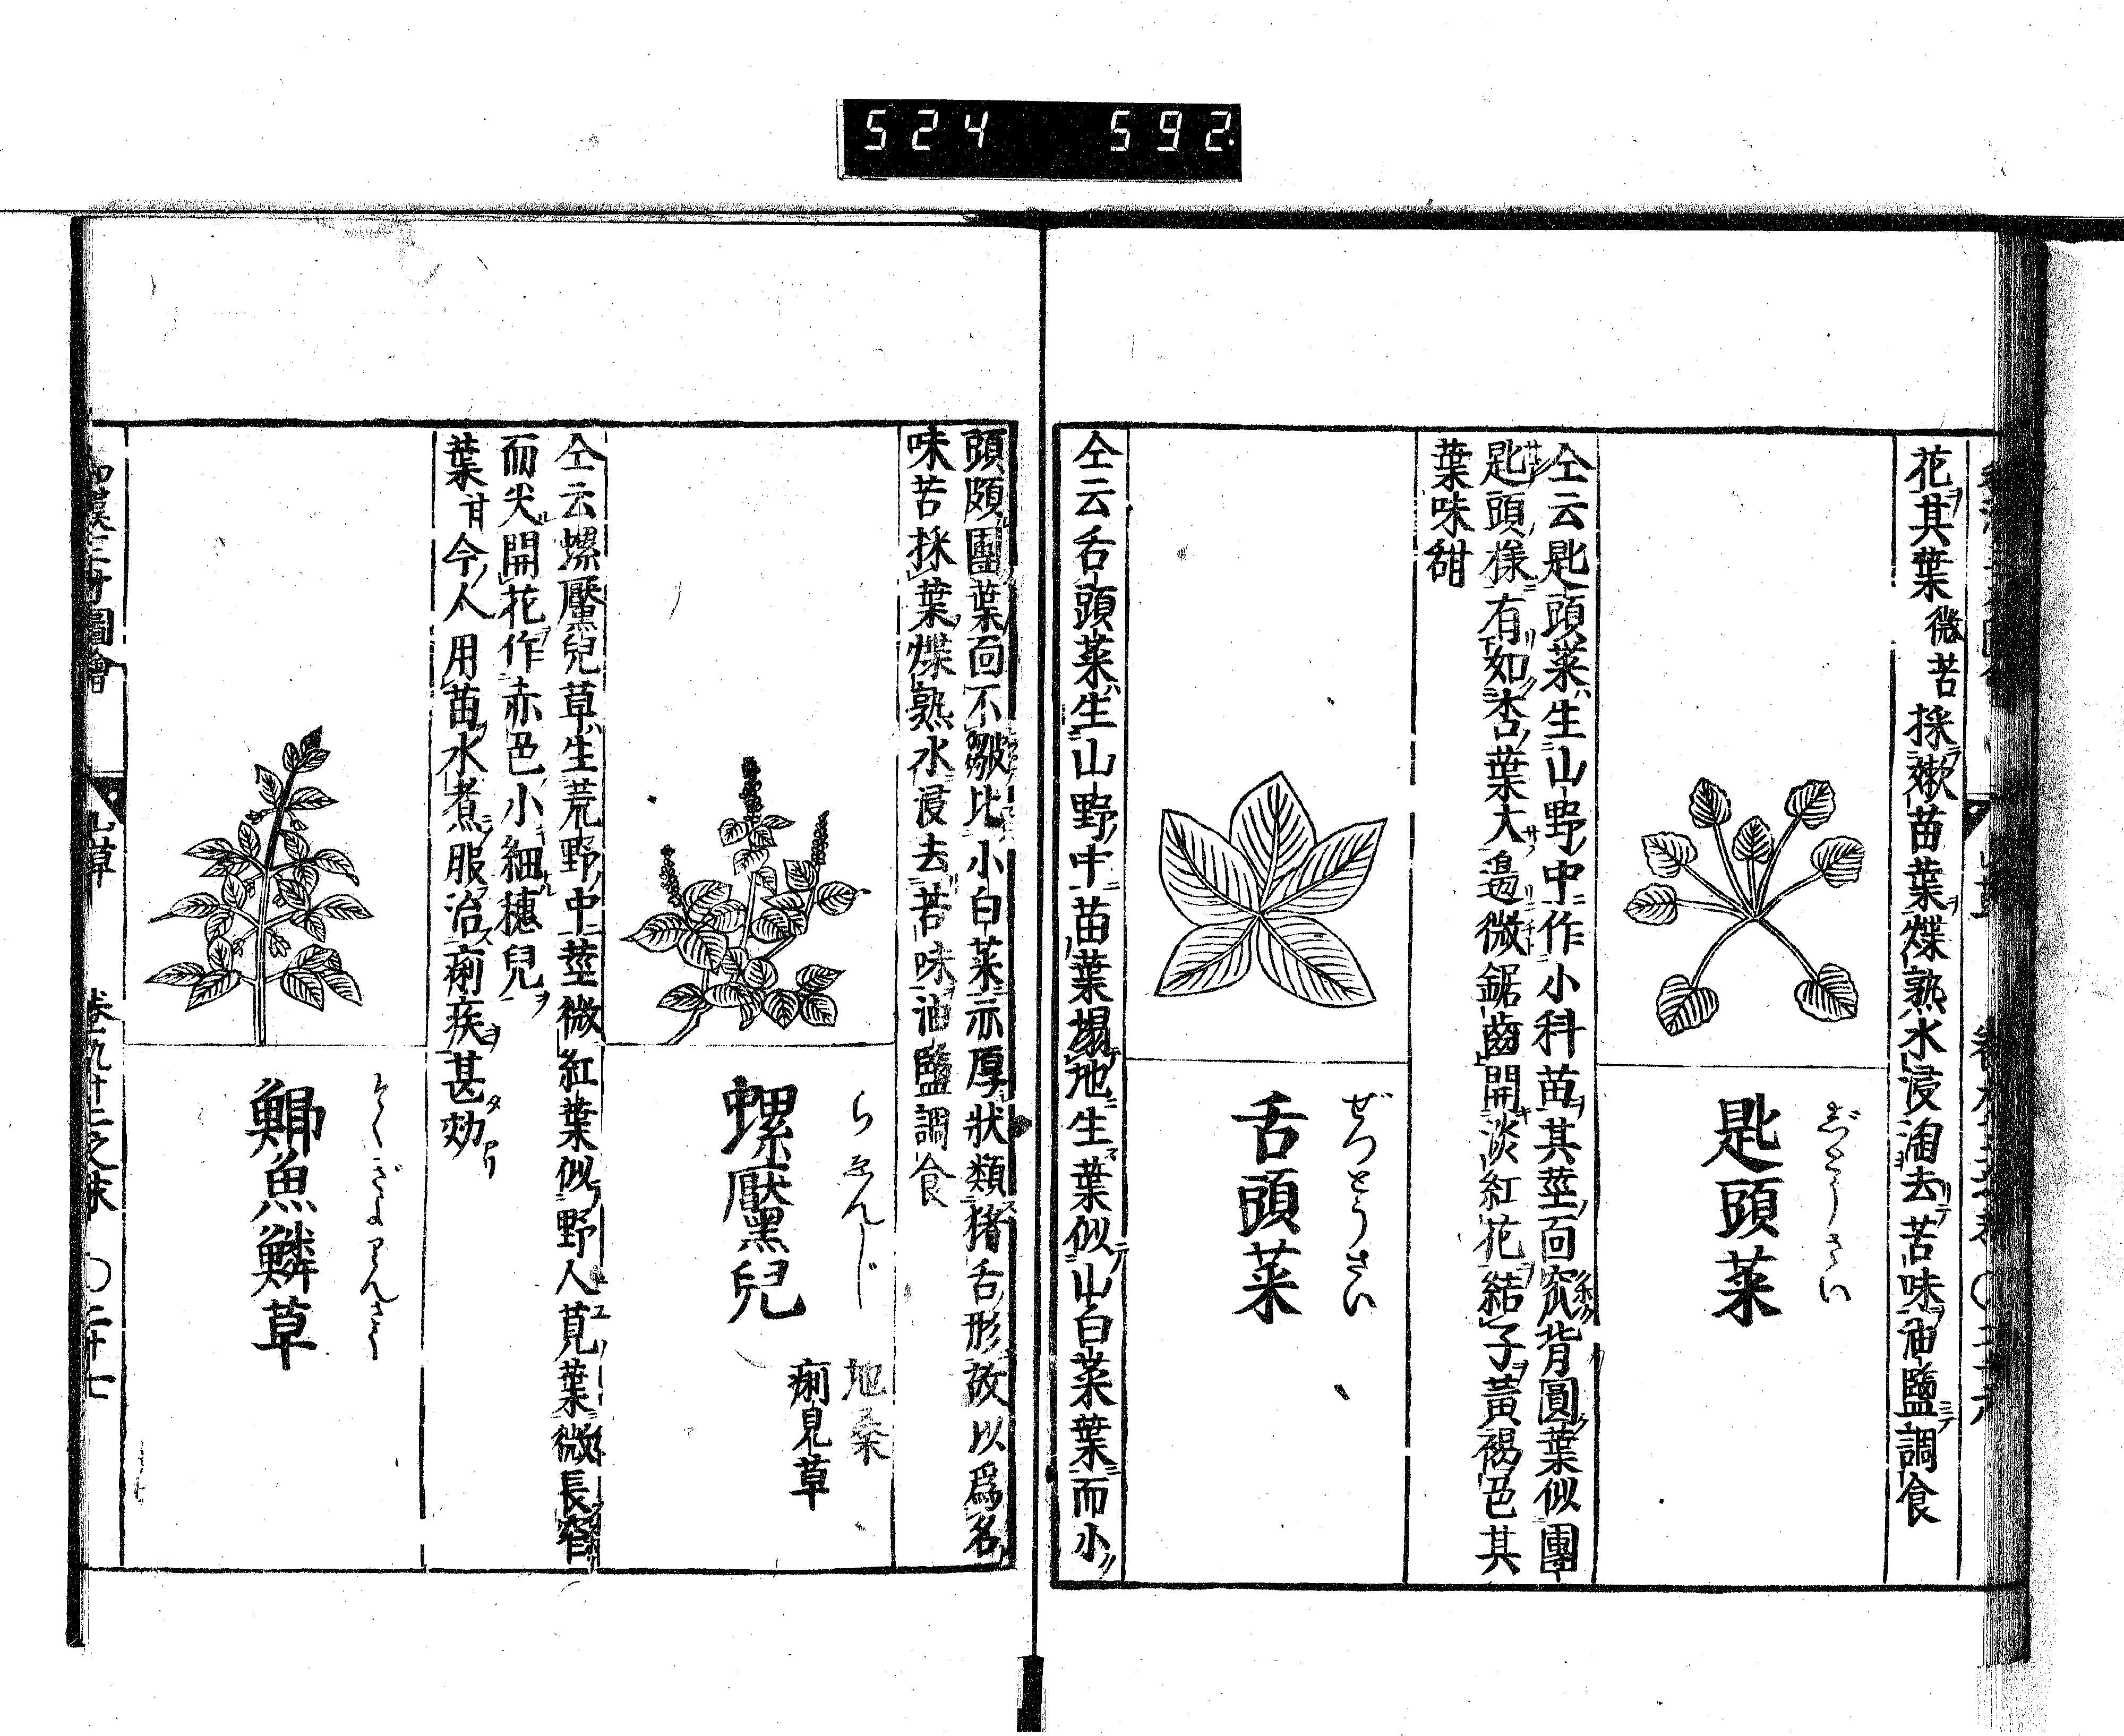 524 592
花其葉微苦採嫩苗葉煠熟水浸淘去苦味油鹽調食
匙頭菜
仝云匙頭菜生山野中作小科苗其莖面窊背圓葉似團
匙頭樣有如杏葉大邉微鋸齒開淡紅花結子黃褐色其
葉味甜
舌頭菜
ぜつとうさい
仝云舌頭菜生山野中苗葉搨地生葉似山白菜葉而小
頭頗團葉面不皺比小白菜亦厚狀類猪舌形故以爲名
味苦採葉煠熟水浸去苦味油鹽調食
螺黶兒
らゑんじ
地桑
痢見草
仝云螺黶兒草生荒野中莖微紅葉似野人莧葉微長窄
而尖開花作赤色小細穗兒
葉甘今人用苗水煮服治痢疾甚効
鯽魚鱗草
和漢三才圖會 山草 卷九十二之末 〇二十七